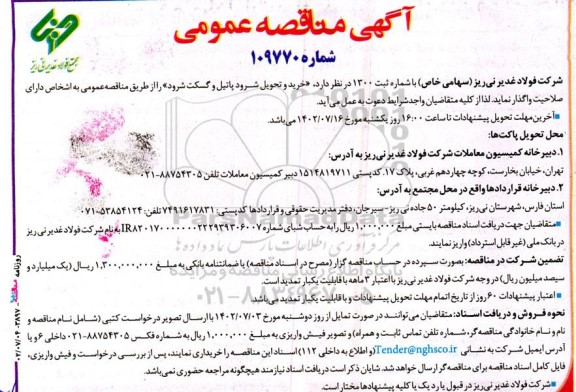 آگهی مناقصه عمومی
شماره ۱۰۹۷۷۰
مجتمع فولاد غدیر نی ریز
شرکت فولاد غدیر نی‌ریز (سهامی خاص) با شماره ثبت ۱۳۰۰ در نظر دارد، «خرید و تحویل شرود پاتیل و گسکت شرود» را از طریق مناقصه عمومی به اشخاص دارای
صلاحیت واگذار نماید. لذا از کلیه متقاضیان واجد شرایط دعوت به عمل می‌آید.
■ آخرین مهلت تحویل پیشنهادات تا ساعت ۱۶:۰۰ روز یکشنبه مورخ ۱۴۰۲/۰۷/۱۶ می‌باشد.
محل تحویل پاکت‌ها:
۱. دبیرخانه کمیسیون معاملات شرکت فولاد غدیر نی‌ریز به آدرس:
تهران، خیابان بخارست، کوچه چهاردهم غربی، پلاک ۱۷. کدپستی ۱۵۱۴۸۱۹۷۱۱ دبیر کمیسیون معاملات تلفن ۸۸۷۵۴۳۰۵-۰۲۱
۲. دبیرخانه قراردادها واقع در محل مجتمع به آدرس:
استان فارس، شهرستان نی‌ریز، کیلومتر ۵۰ جاده نی‌ریز - سیرجان، دفتر مدیریت حقوقی و قراردادها کدپستی: ۷۴۹۱۶۱۷۸۳۱ تلفن: ۵۳۸۵۴۱۲۴-۰۷۱
■ متقاضیان جهت دریافت اسناد مناقصه بایستی مبلغ ۱,۰۰۰,۰۰۰ ریال را به حساب شبای شماره به نام شرکت فولاد غدیر نی ریز
در بانک ملی (غیر قابل استرداد) واریز نمایند.
تضمین شرکت در مناقصه: بصورت سپرده در حساب مناقصه گزار (مصرح در اسناد مناقصه) یا ضمانتنامه بانکی به مبلغ ۱,۳۰۰,۰۰۰,۰۰۰ ریال (یک میلیارد و
سیصد میلیون ریال) در وجه شرکت فولاد غدیر نی‌ریز با اعتبار ۳ ماهه با قابلیت یکبار تمدید است.
■ اعتبار پیشنهادات ۶۰ روز از تاریخ اتمام مهلت تحویل پیشنهادات و با قابلیت یکبار تمدید می‌باشد.
نحوه فروش و دریافت اسناد: متقاضیان می‌توانند در صورت تمایل از روز دوشنبه مورخ ۱۴۰۲/۰۷/۰۳ با ارسال تصویر درخواست کتبی (شامل نام مناقصه و
نام و نام خانوادگی مناقصه‌گر، شماره تلفن تماس ثابت و همراه) و تصویر فیش واریزی به مبلغ ۱,۰۰۰,۰۰۰ ریال به شماره فکس ۸۸۷۵۴۳۰۵-۰۲۱ داخلی ۶ و یا
آدرس ایمیل شرکت به نشانی Tender@nghsco.ir (و اطلاع به داخلی ۱۱۲) اسناد این مناقصه را خریداری نمایند، پس از بررسی درخواست و فیش واریزی،
فایل کامل اسناد مناقصه برای مناقصه گر ارسال خواهد شد. شایان ذکر است دریافت اسناد نیازمند هیچگونه مراجعه حضوری نمی‌باشد.
■ شرکت فولاد غدیر نی‌ریز در قبول یا رد یک یا کلیه پیشنهادها مختار است.
روزنامه مناقصه ۳۸۹۷ - ۱۴۰۲/۰۷/۰۴
ParsNamadData
پایگاه اطلاع رسانی مناقصه و مزایده
۰۲۱-۸۸۳۴۹۶۷۰-۵